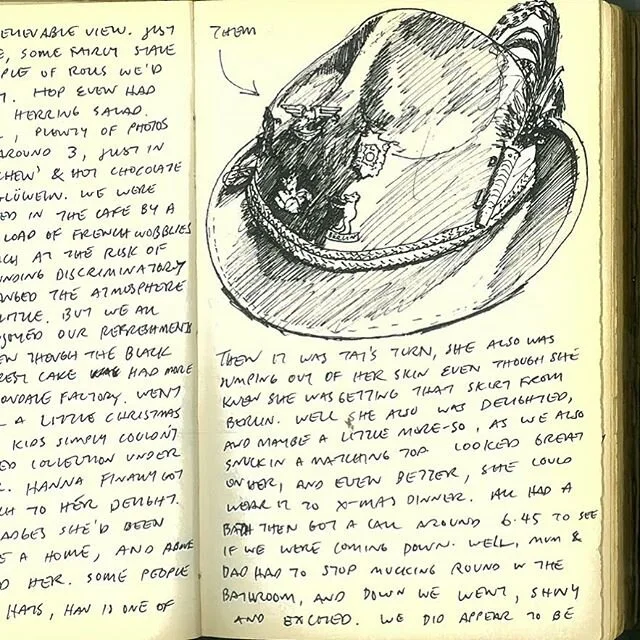 BELIEVABLE VIEW. JUST
E, SOME FAIRLY STALE
PLE OF ROLLS WE'D
T. HOP EVEN HAD
HERRING SALAD.
, PLENTY OF PHOTOS
AROUND 3, JUST IN
CHEN' & HOT CHOCOLATE
GLÜWEIN. WE WERE
ED IN THE CAFE BY A
LOAD OF FRENCH WOBBLIES
CH AT THE RISK OF
UNDING DISCRIMINATORY
ANGED THE ATMOSPHERE
LITTLE. BUT WE ALL
JOYED OUR REFRESHMENTS
EN THOUGH THE BLACK
REST CAKE HAD MORE
ONDALE FACTORY. WENT
A LITTLE CHRISTMAS
KIDS SIMPLY COULDN'T
ED COLLECTION UNDER
. HANNA FINALLY GOT
CH TO HER DELIGHT.
ADGES SHE'D BEEN
E A HOME, AND ABOVE
D HER. SOME PEOPLE
HATS, HAN IS ONE OF
THEM
BERLIN
THEN IT WAS TAI'S TURN, SHE ALSO WAS
JUMPING OUT OF HER SKIN EVEN THOUGH SHE
KNEW SHE WAS GETTING THAT SKIRT FROM
BERLIN. WELL SHE ALSO WAS DELIGHTED,
AND MAYBE A LITTLE MORE-SO, AS WE ALSO
SNUCK IN A MATCHING TOP. LOOKED GREAT
ON HER, AND EVEN BETTER, SHE COULD
WEAR IT TO X-MAS DINNER. ALL HAD A
BATH THEN GOT A CALL AROUND 6.45 TO SEE
IF WE WERE COMING DOWN. WELL, MUM &
DAD HAD TO STOP MUCKING ROUND IN THE
BATHROOM, AND DOWN WE WENT, SHINY
AND EXCITED. WE DID APPEAR TO BE